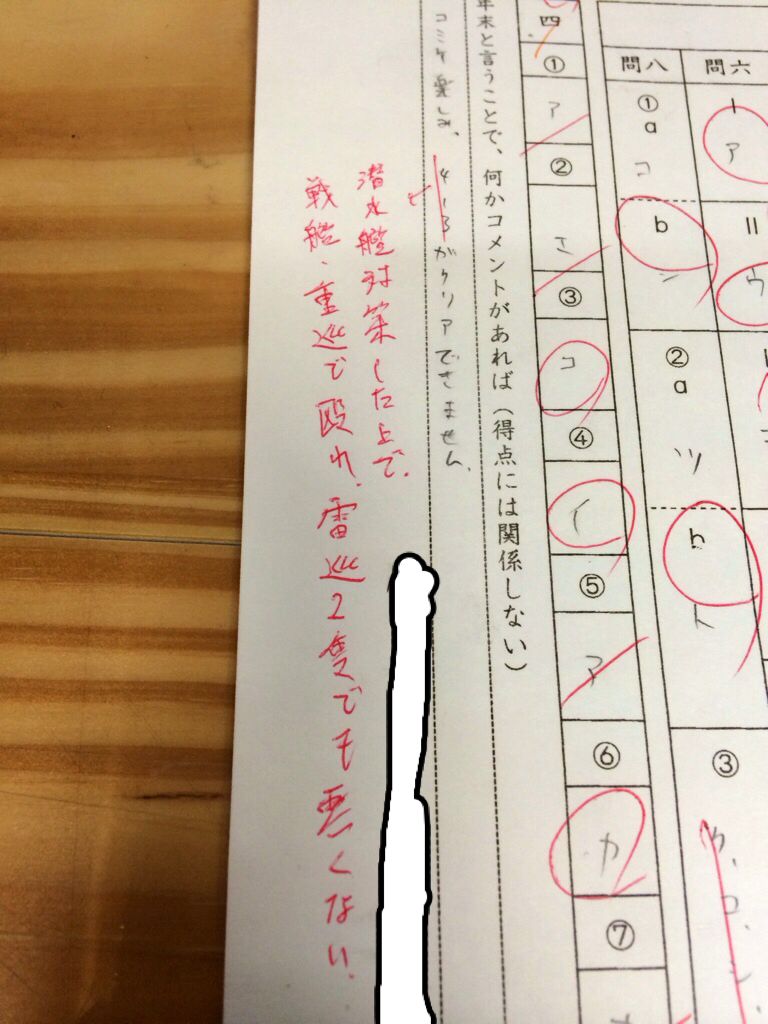 問六
I
ア
II
ウ
問八
①
a
コ
b
シ
②
a
ツ
b
ト
③
四
①
ア
②
エ
③
コ
④
イ
⑤
ア
⑥
カ
⑦
年末と言うことで、何かコメントがあれば(得点には関係しない)
コミケ楽しみ、4-3がクリアできません。
潜水艦対策した上で、
戦艦・重巡で殴れ。雷巡2隻でも悪くない。